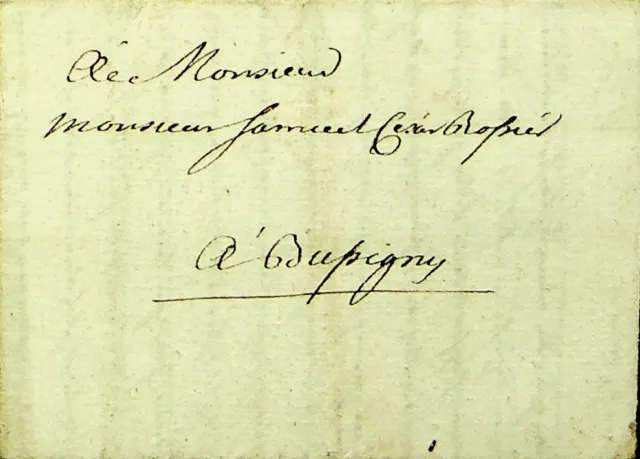 A Monsieur
monsieur Samuel Cesar Rossier
A Bussigny